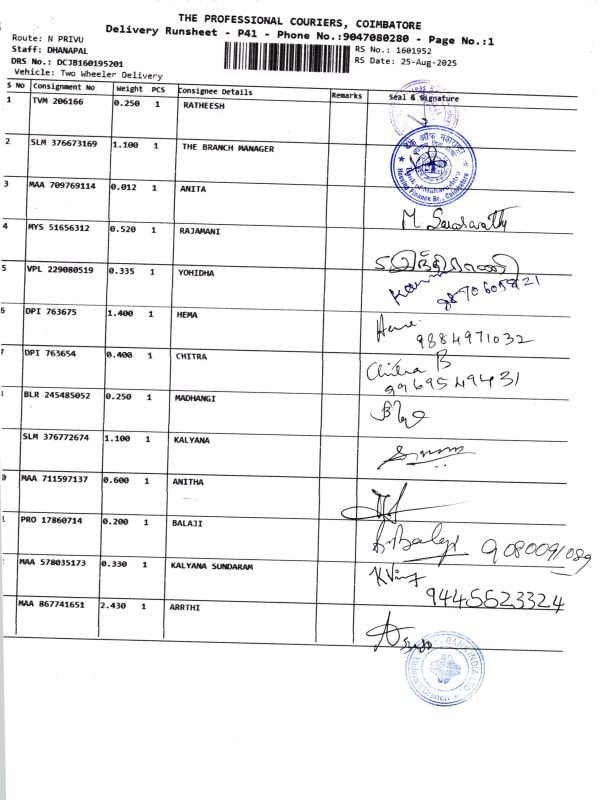 THE PROFESSIONAL COURIERS, COIMBATORE
Delivery Runsheet - P41 - Phone No.:9047080280 - Page No.:1
Route: N PRIVU
Staff: DHANAPAL
DRS No.: DCJB160195201
Vehicle: Two Wheeler Delivery
RS No.: 1601952
RS Date: 25-Aug-2025
S No Consignment No Weight PCS Consignee Details Remarks Seal & Signature
1 TVM 206166 0.250 1 RATHEESH
2 SLM 376673169 1.100 1 THE BRANCH MANAGER
बैंक ऑफ महाराष्ट्र
Bank of Maharashtra
Housing Finance Br., Coimbatore
3 MAA 709769114 0.012 1 ANITA
M Sarasvathy
4 MYS 51656312 0.520 1 RAJAMANI
5 VPL 229080519 0.335 1 YOHIDHA
6 DPI 763675 1.400 1 HEMA
9884971032
7 DPI 763654 0.400 1 CHITRA
Chitra B
9969549431
BLR 245485052 0.250 1 MADHANGI
SLM 376772674 1.100 1 KALYANA
0 MAA 711597137 0.600 1 ANITHA
PRO 17860714 0.200 1 BALAJI
Balaji 9080091089
MAA 578035173 0.330 1 KALYANA SUNDARAM
9445623324
MAA 867741651 2.430 1 ARRTHI